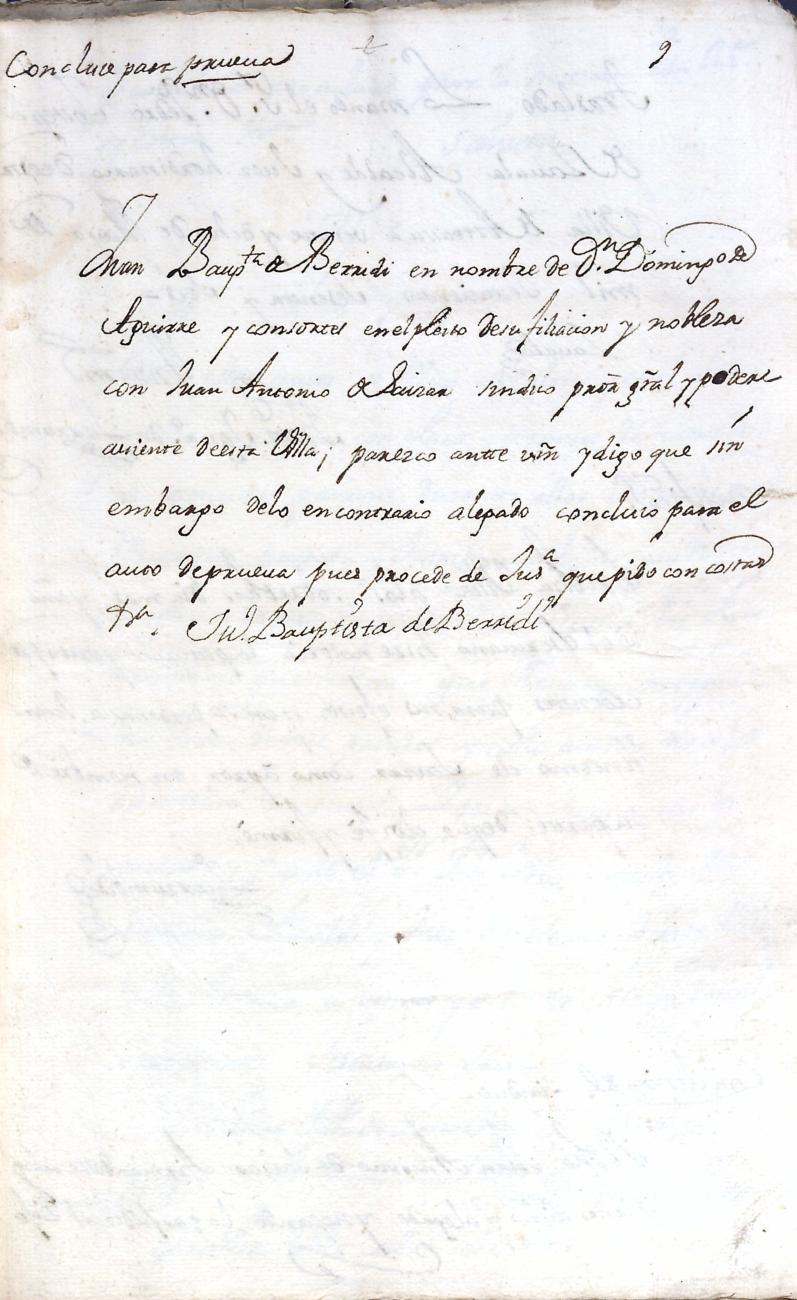 Concluie para prueva
9
Juan Baupta de Berridi en nombre de Dn. Domingo de
Aguirre y consortes en el pleito de su filiacion y nobleza
con Juan Antonio de Lairar sindico prōr ḡral y poder
aviente de esta Villa; parezco antte vm̄ y digo que sin
embargo de lo encontrario alegado concluio para el
auto de prueva pues procede de Jusa que pido con costas
Ju. Bauptista de Berridi